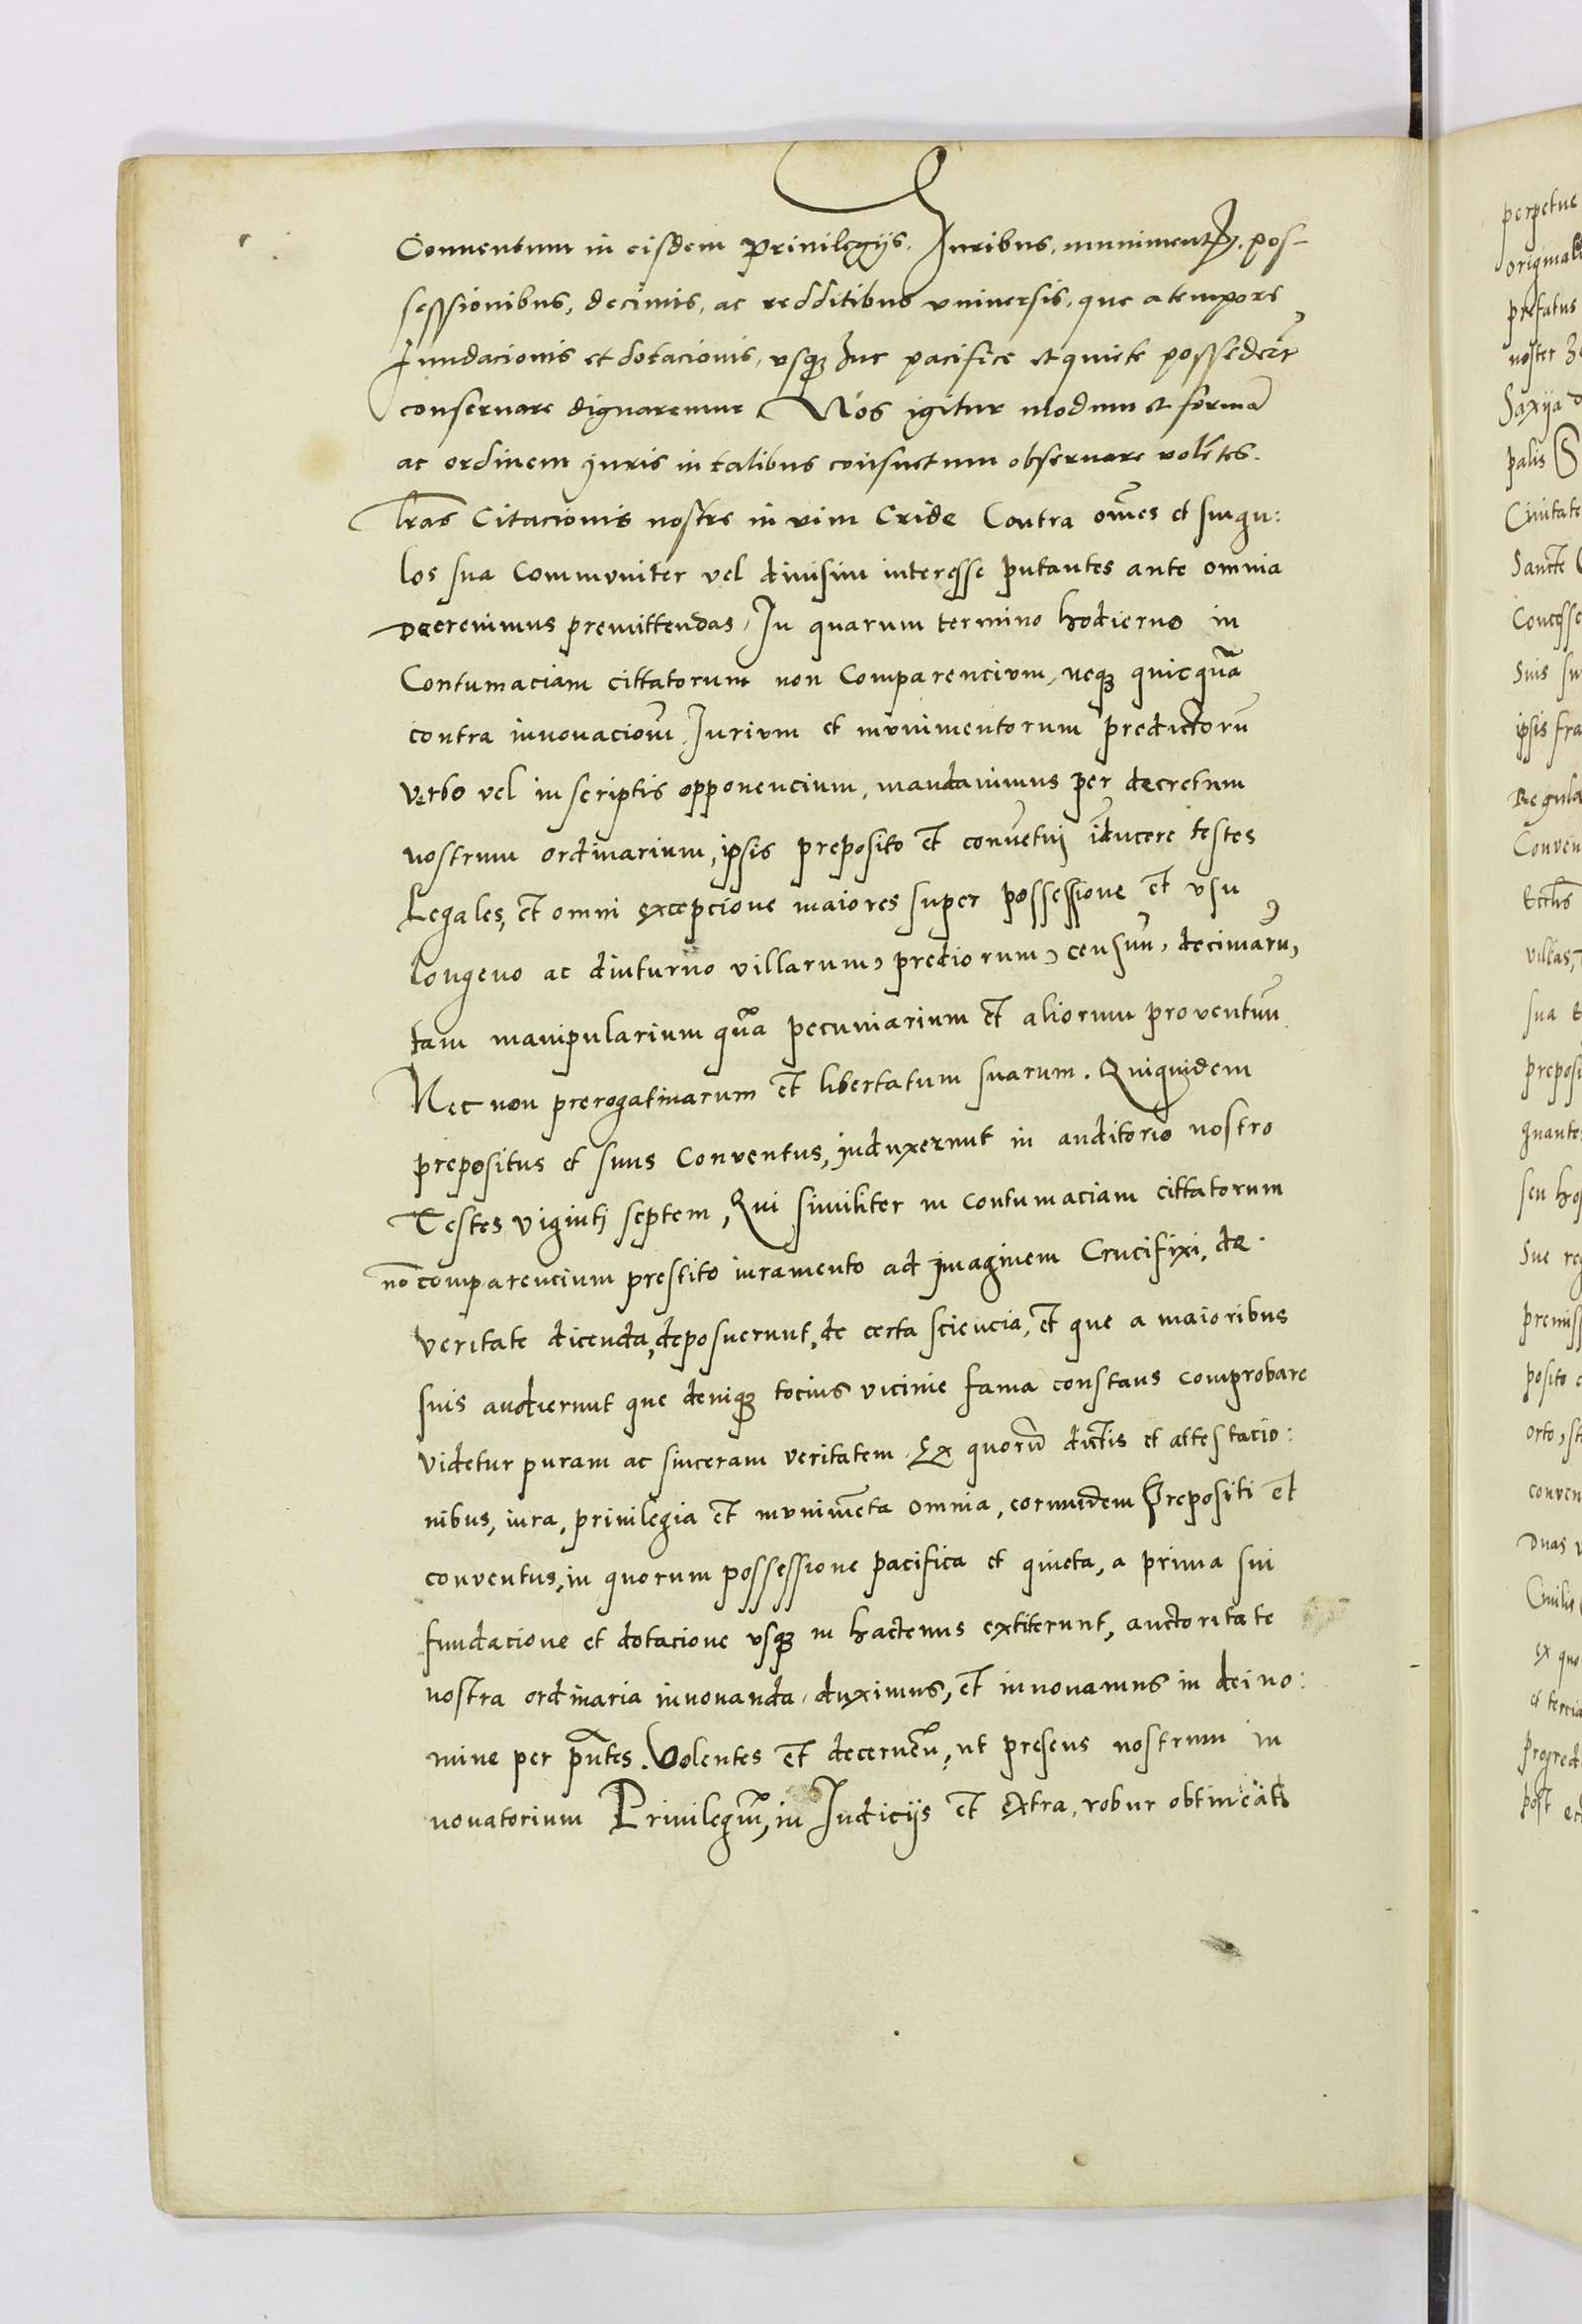 Conuentum in eisdem priuilegijs. Iuribus, munimentis. pos-
sessionibus, decimis, ac redditibus vniuersis, que a tempore
Fundacionis et dotacionis, vsq₃ huc pacifice et quiete possederūt
conseruare dignaremur, Nos igitur modum et formā
ac ordinem juris in talibus cōnsuetum obseruare volētes.
Lr̄as Citacionis nostre in vim Cride Contra om̄es et singu:
los sua Commvniter vel diuisim interesse putantes ante omnia
decreuimus premittendas, In quarum termino hodierno in
Contumaciam cittatorum non Comparencivm, neq₃ quicquā
contra innouacion̄ Iurivm et mvnimentorum predictorū
verbo vel in scriptis opponencium, mandauimus per decretum
nostrum ordinarium, ipsis preposito et convētuj īducere testes
Legales, et omni excepcione maiores super possessione et vsu
longeuo ac diuturno villarum, prediorum, censuū, decimarū,
tam manipularium quā pecuniarium et aliorum proventuū
Nec non prerogatiuarum et libertatum suarum. Quiquidem
prepositus et suus Conventus, induxerunt in auditorio nostro
Testes viginti septem, Qui similiter in contumaciam cittatorum
nō comparencium prestito iuramento ad jmaginem Crucifixi, de
veritate dicenda, deposuerunt, de certa sciencia, et que a maioribus
suis audiernut que deniq₃ tocius vicinie fama constans comprobare
videtur puram ac sinceram veritatem. Ex quorū dictis et attestacio:
nibus, iura, priuilegia et mvnimēta omnia, eorumdem Prepositi et
conventus, in quorum possessione pacifica et quieta, a prima sui
fundacione et dotacione vsq₃ in hactenus extiterunt, auctoritate
nostra ordinaria innouanda, duximus, et innouamus in dei no:
mine per pn̄tes. Volentes et decernen̄, ut presens nostrum in
nouatorium Priuilegiū, in Iudicijs et extra, robur obtineat
perpetue
original
prefatus
noster
Saxija
palis
Ciuitate
Sancte
Concesse
suis
ipsis fra
Regula
Conven
Eccl̄is
villas,
sua
preposi
quante
seu hos
Sue reg
premiss
posito
orto, st
conven
Duas
Ciuilis
ex quo
et tercia
progred
post